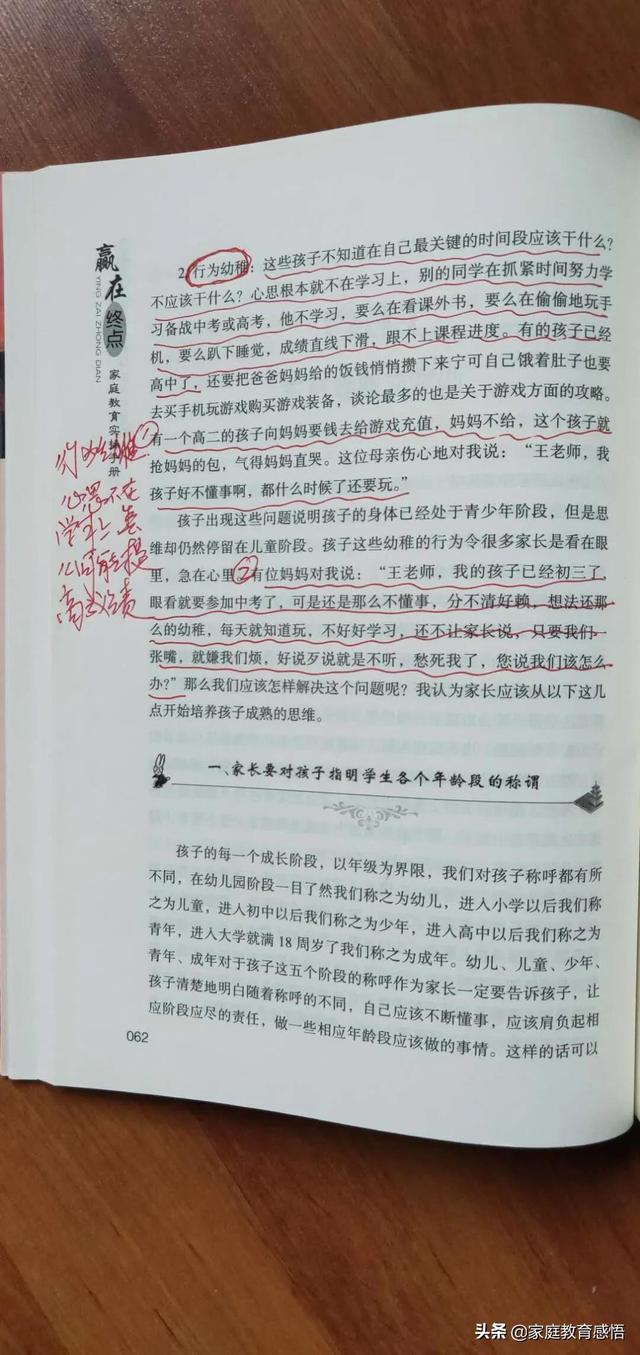 赢在终点
YING ZAI ZHONG DIAN
家庭教育实
册
2.行为幼稚：这些孩子不知道在自己最关键的时间段应该干什么？
不应该干什么？心思根本就不在学习上，别的同学在抓紧时间努力学
习备战中考或高考，他不学习，要么在看课外书，要么在偷偷地玩手
机，要么趴下睡觉，成绩直线下滑，跟不上课程进度。有的孩子已经
高中了，还要把爸爸妈妈给的饭钱悄悄攒下来宁可自己饿着肚子也要
去买手机玩游戏购买游戏装备，谈论最多的也是关于游戏方面的攻略。
有一个高二的孩子向妈妈要钱去给游戏充值，妈妈不给，这个孩子就
抢妈妈的包，气得妈妈直哭。这位母亲伤心地对我说：“王老师，我
孩子好不懂事啊，都什么时候了还要玩。”
孩子出现这些问题说明孩子的身体已经处于青少年阶段，但是思
维却仍然停留在儿童阶段。孩子这些幼稚的行为令很多家长是看在眼
里，急在心里②有位妈妈对我说：“王老师，我的孩子已经初三了，
眼看就要参加中考了，可是还是那么不懂事，分不清好赖，想法还那
么的幼稚，每天就知道玩，不好好学习，还不让家长说，只要我们一
张嘴，就嫌我们烦，好说歹说就是不听，愁死我了，您说我们该怎么
办？”那么我们应该怎样解决这个问题呢？我认为家长应该从以下这几
点开始培养孩子成熟的思维。
①
行为幼稚
心思不在
学习上 怎
么可能提
高成绩
一、家长要对孩子指明学生各个年龄段的称谓
孩子的每一个成长阶段，以年级为界限，我们对孩子称呼都有所
不同，在幼儿园阶段一目了然我们称之为幼儿，进入小学以后我们称
之为儿童，进入初中以后我们称之为少年，进入高中以后我们称之为
青年，进入大学就满 18 周岁了我们称之为成年。幼儿、儿童、少年、
青年、成年对于孩子这五个阶段的称呼作为家长一定要告诉孩子，让
孩子清楚地明白随着称呼的不同，自己应该不断懂事，应该肩负起相
应阶段应尽的责任，做一些相应年龄段应该做的事情。这样的话可以
062
头条 @家庭教育感悟